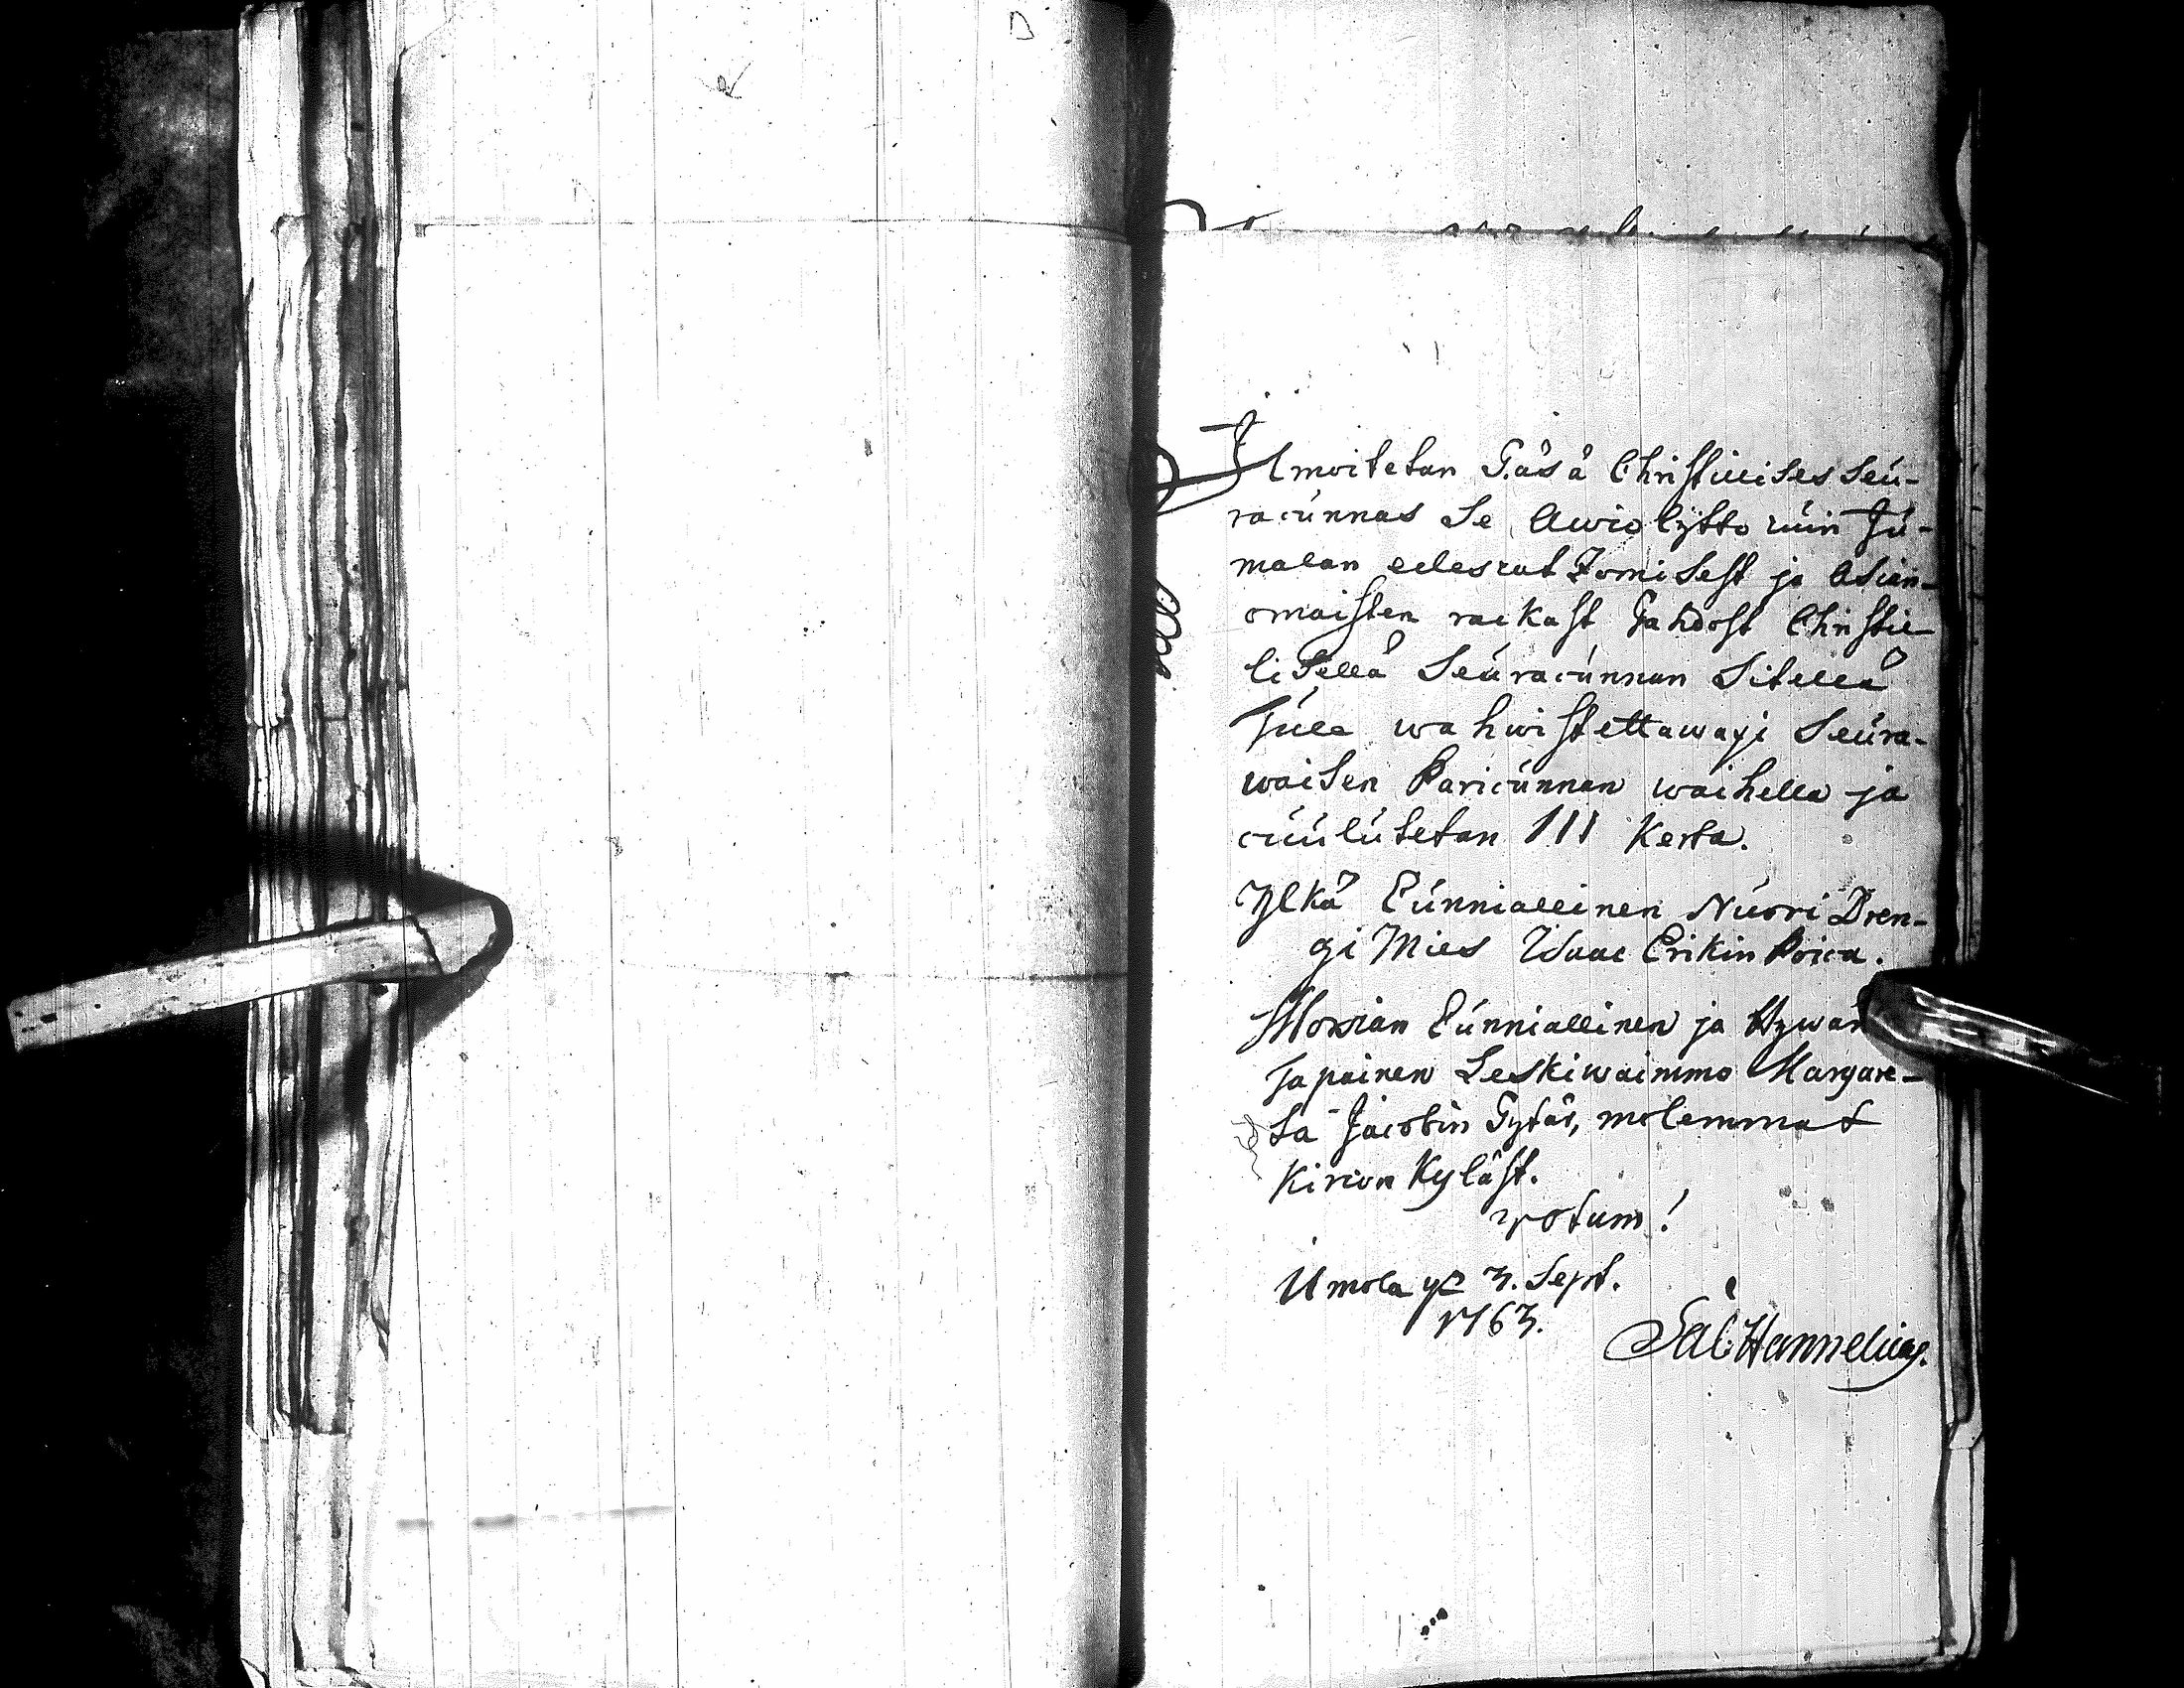 Ilmoitetan Täsä Christilises Seu-
racunnas Se Awio lijtto cuin Ju-
malan edescat Zomisest ja Asian-
omaisten rackast Tahdost Christil-
liSellä Seuracunnan Sitellä
Tule wahwistettawaxi Seura-
waisen Paricunnan waihella ja
cuulutetan III Kerta.
Ylkä Cunniallinen Nuori Dren-
gi Mies Isaac Erikin Poica.
Morsian Cunniallinen ja Hywän
Tapainen Leskiwaimmo Margare-
ta Jacobin Tytär, molemmat
Kircon Kyläst.
votum!
Umola ÿ 3. Sept.
1763.
Sal Hannelius.